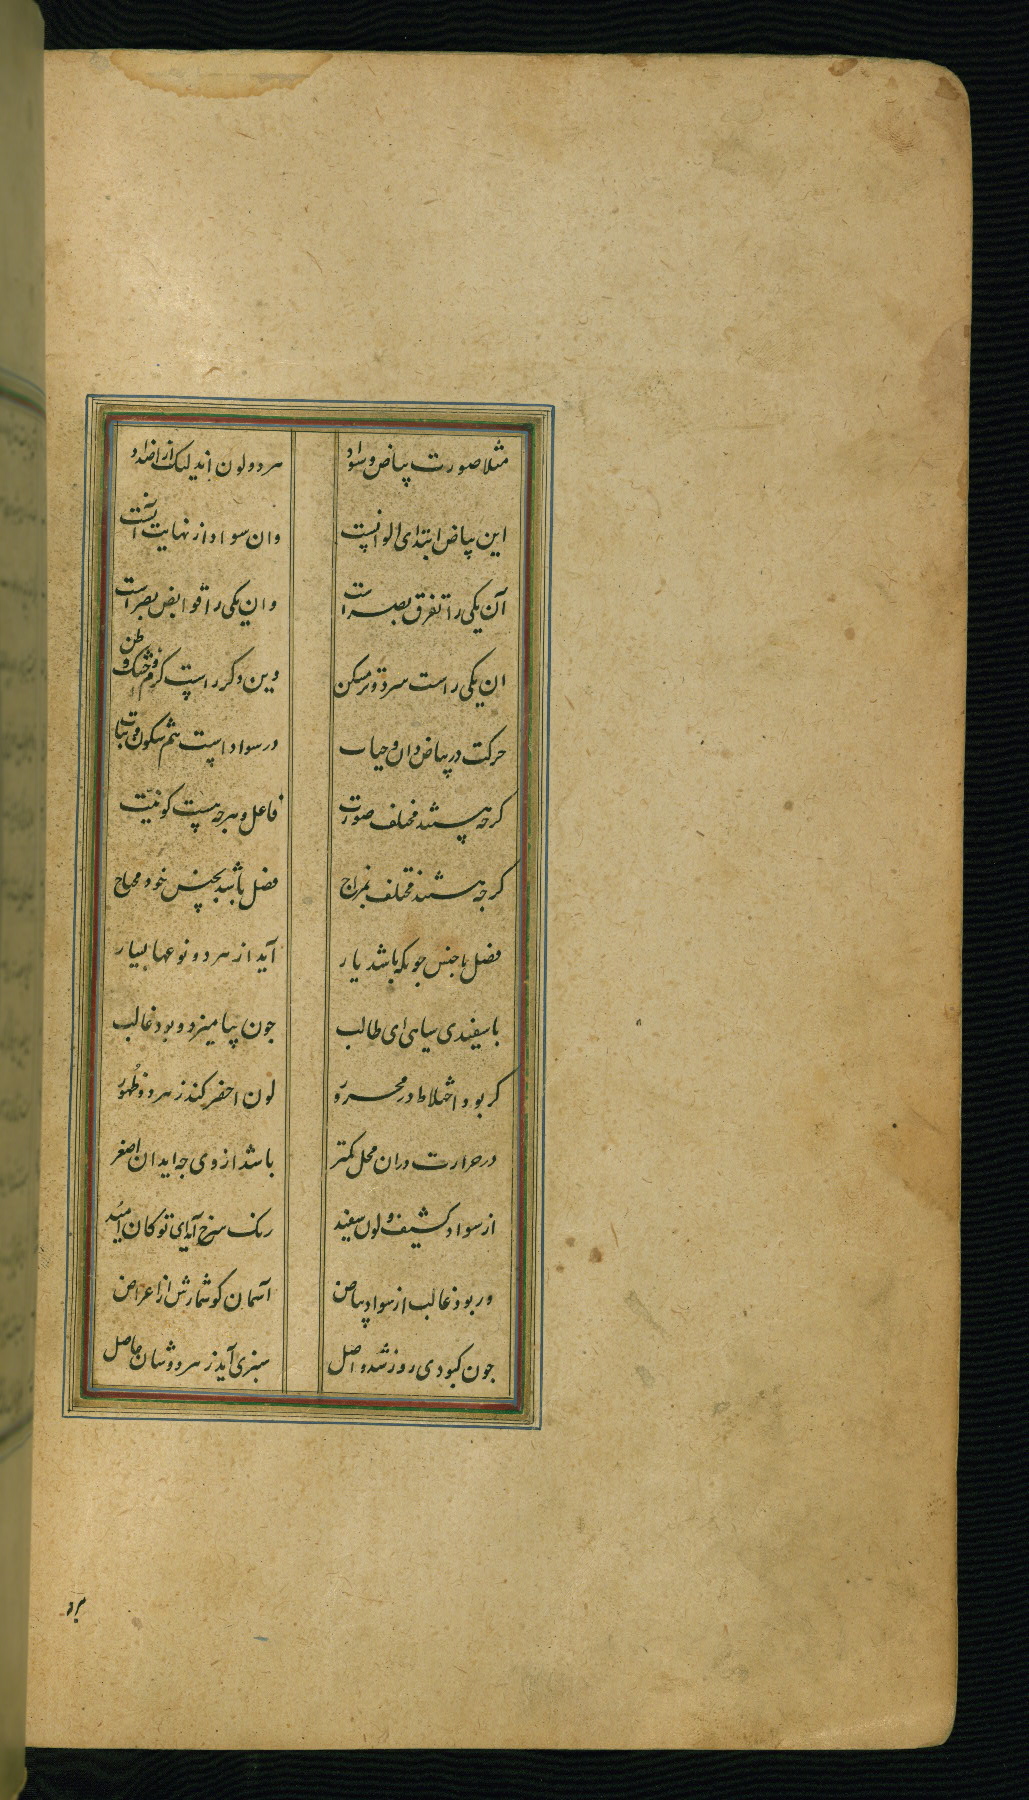 مثلا صورت بیاض و سواد هر دو لون اند لیک از اضداد
این بیاض ابتدای الوانست وان سواد از نهایت آنست
آن یکی را تفرق بصر است وان یکی را قوابض بصر است
ان یکی راست سرد و تر مسکن وین دکر راست کرم و خشک وطن
حرکت در بیاض دان و حیات در سواد است هم سکون و ثبات
کرچه هستند مختلف صورت فاعل و هرچه هست کونیت
کرچه هستند مختلف بمزاج فصل باشد بجنس خود محتاج
فصل با جنس چونکه باشد یار آید از هر دو نوعها بسیار
با سفیدی سیاهی ای طالب چون بیامیزد و بود غالب
کر بود اختلاط در محرور لون اخضر کند ز هر دو ظهور
در حرارت در ان محل کمتر باشد از وی چه اید ان اصفر
از سواد کثیف و لون سفید رنک سرخ آید ای تو کان امید
ور بود غالب از سواد بیاض آسمان کو شمارش از اعراض
چون کبودی روز شد واصل سبزی آید ز هر دوشان حاصل